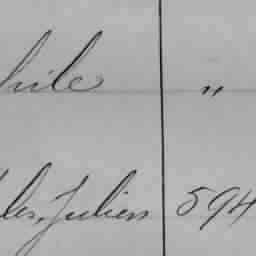 hile "
les, Julien 594